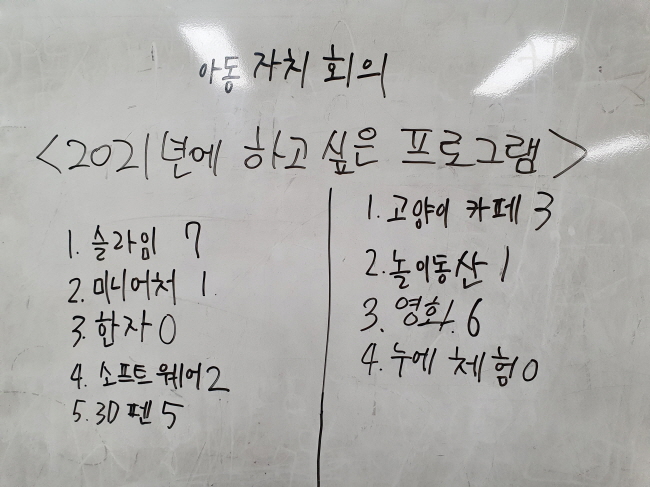 아동 자치 회의
<2021년에 하고 싶은 프로그램>
1. 슬라임 7
2. 미니어처 1
3. 한자 0
4. 소프트웨어 2
5. 3D 펜 5
1. 고양이 카페 3
2. 놀이동산 1
3. 영화. 6
4. 누에 체험 0